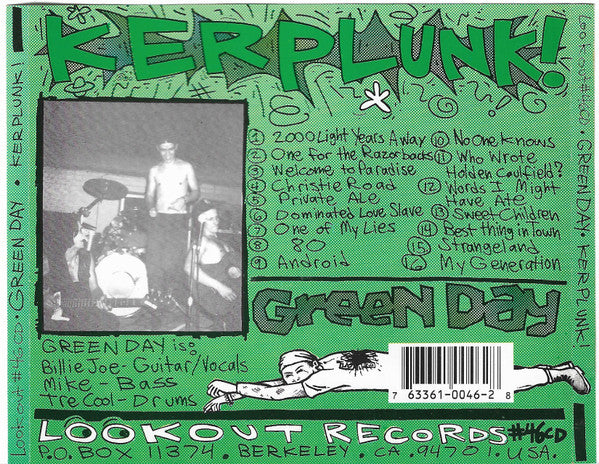 KERPLUNK!
1 2000 Light Years Away
2 One for the Razorbacks
3 Welcome to Paradise
4 Christie Road
5 Private Ale
6 Dominated Love Slave
7 One of My Lies
8 80
9 Android
10 No One Knows
11 Who Wrote
Holden Caulfield?
12 Words I Might
Have Ate
13 Sweet Children
14 Best thing in Town
15 Strangeland
16 My Generation
GREEN DAY
GREEN DAY is:
Billie Joe-Guitar/Vocals
Mike - Bass
Tre Cool-Drums
7 63361-0046-2 8
LOOKOUT RECORDS #46CD
P.O. BOX 11374. BERKELEY. CA. 94701. USA.
Lookout #46CD · GREEN DAY · KERPLUNK!
Lookout #46CD · GREEN DAY · KERPLUNK!